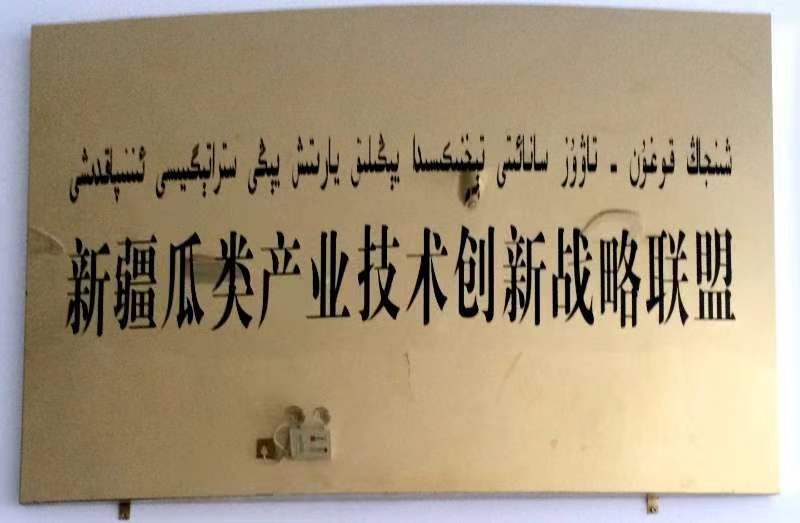 شىنجاڭ قوغۇن - تاۋۇز سانائىتى تېخنىكىسىدا يېڭىلىق يارىتىش يېڭى ستراتېگىيىسى ئىتتىپاقدىشى
新疆瓜类产业技术创新战略联盟